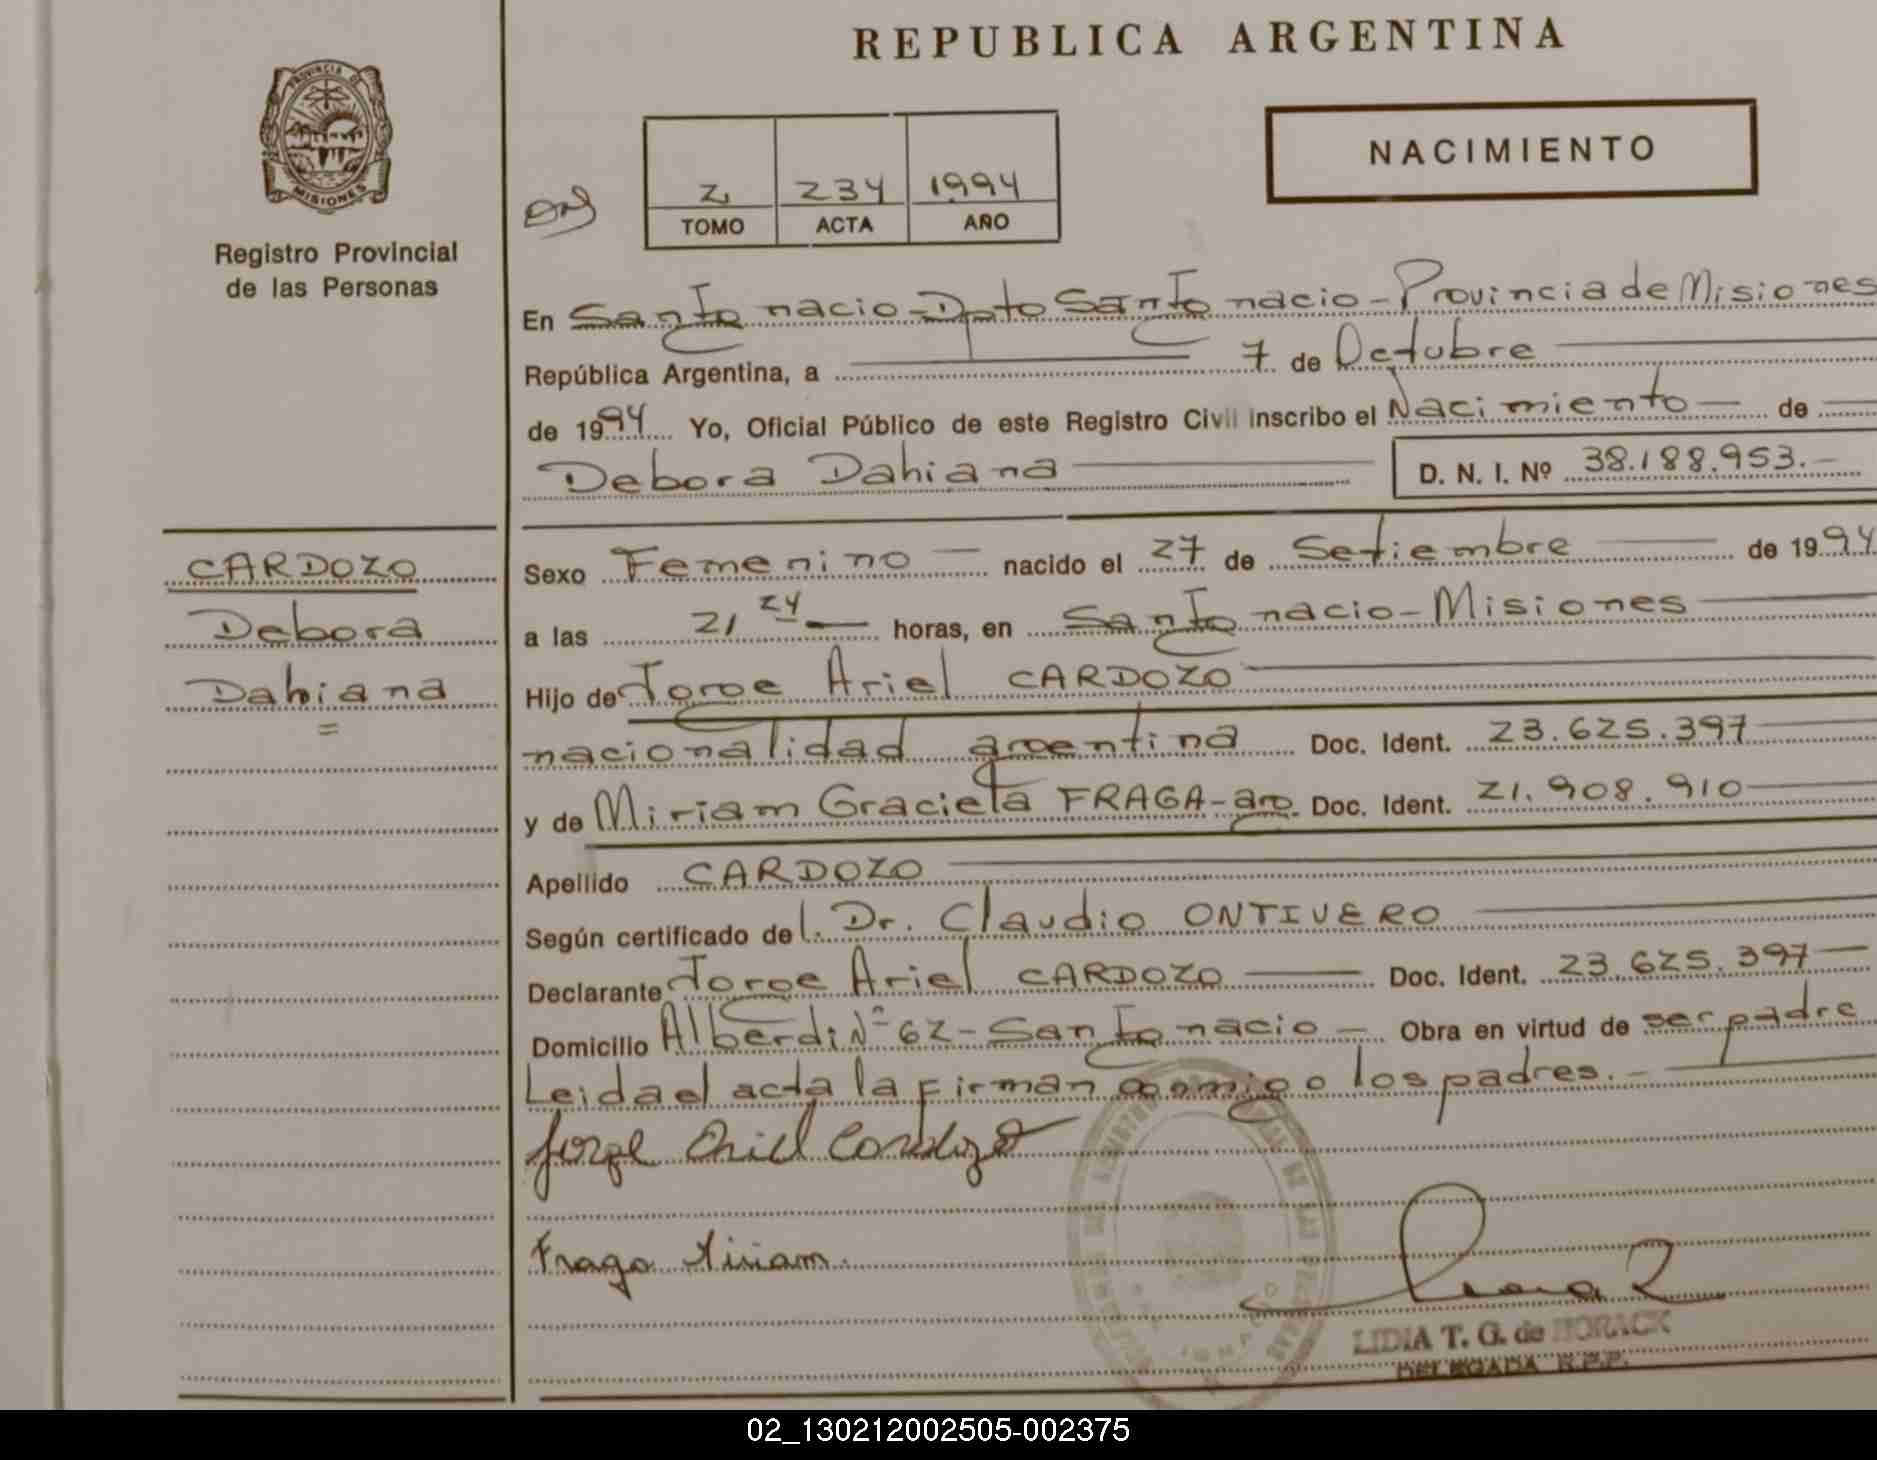 REPUBLICA ARGENTINA
PROVINCIA DE
MISIONES
Registro Provincial
de las Personas
2 234 1994
TOMO ACTA AÑO
NACIMIENTO
En San Ignacio - Dpto San Ignacio - Provincia de Misiones
República Argentina, a 7 de Octubre
de 1994 Yo, Oficial Público de este Registro Civil inscribo el Nacimiento - de
Debora Dahiana D. N. I. Nº 38.188.953.-
CARDOZO
Debora
Dahiana
=
Sexo Femenino - nacido el 27 de Setiembre de 1994
a las 21 24 horas, en San Ignacio - Misiones
Hijo de Jorge Ariel CARDOZO
nacionalidad argentina Doc. Ident. 23.625.397
y de Miriam Graciela FRAGA - arg. Doc. Ident. 21.908.910
Apellido CARDOZO
Según certificado del Dr. Claudio ONTIVERO
Declarante Jorge Ariel CARDOZO Doc. Ident. 23.625.397
Domicilio Alberdi Nº 62 - San Ignacio - Obra en virtud de ser padre
Leida el acta la firman conmigo los padres.-
Jorge Ariel Cardozo
Fraga Miriam.
LIDIA T. G. de HORACK
DELEGADA R.P.P.
02_130212002505-002375